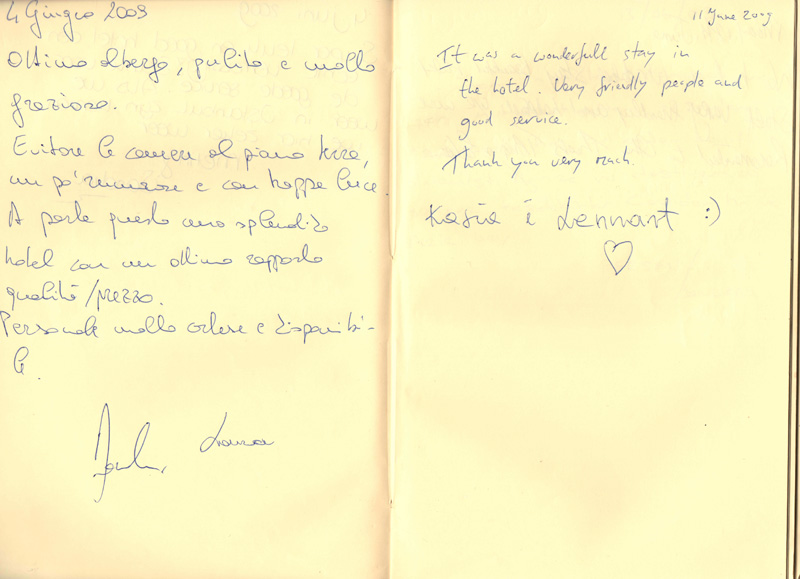 4 Giugno 2009
Ottimo albergo, pulito e molto
grazioso.
Evitare le camere al piano terra,
un po' rumorose e con troppa luce.
A parte questo uno splendido
hotel con un ottimo rapporto
qualità/prezzo.
Personale molto cortese e disponibi-
le.
Laura
11 June 2009
It was a wonderfull stay in
the hotel. Very friendly people and
good service.
Thank you very much.
Kasia i Lennart :)